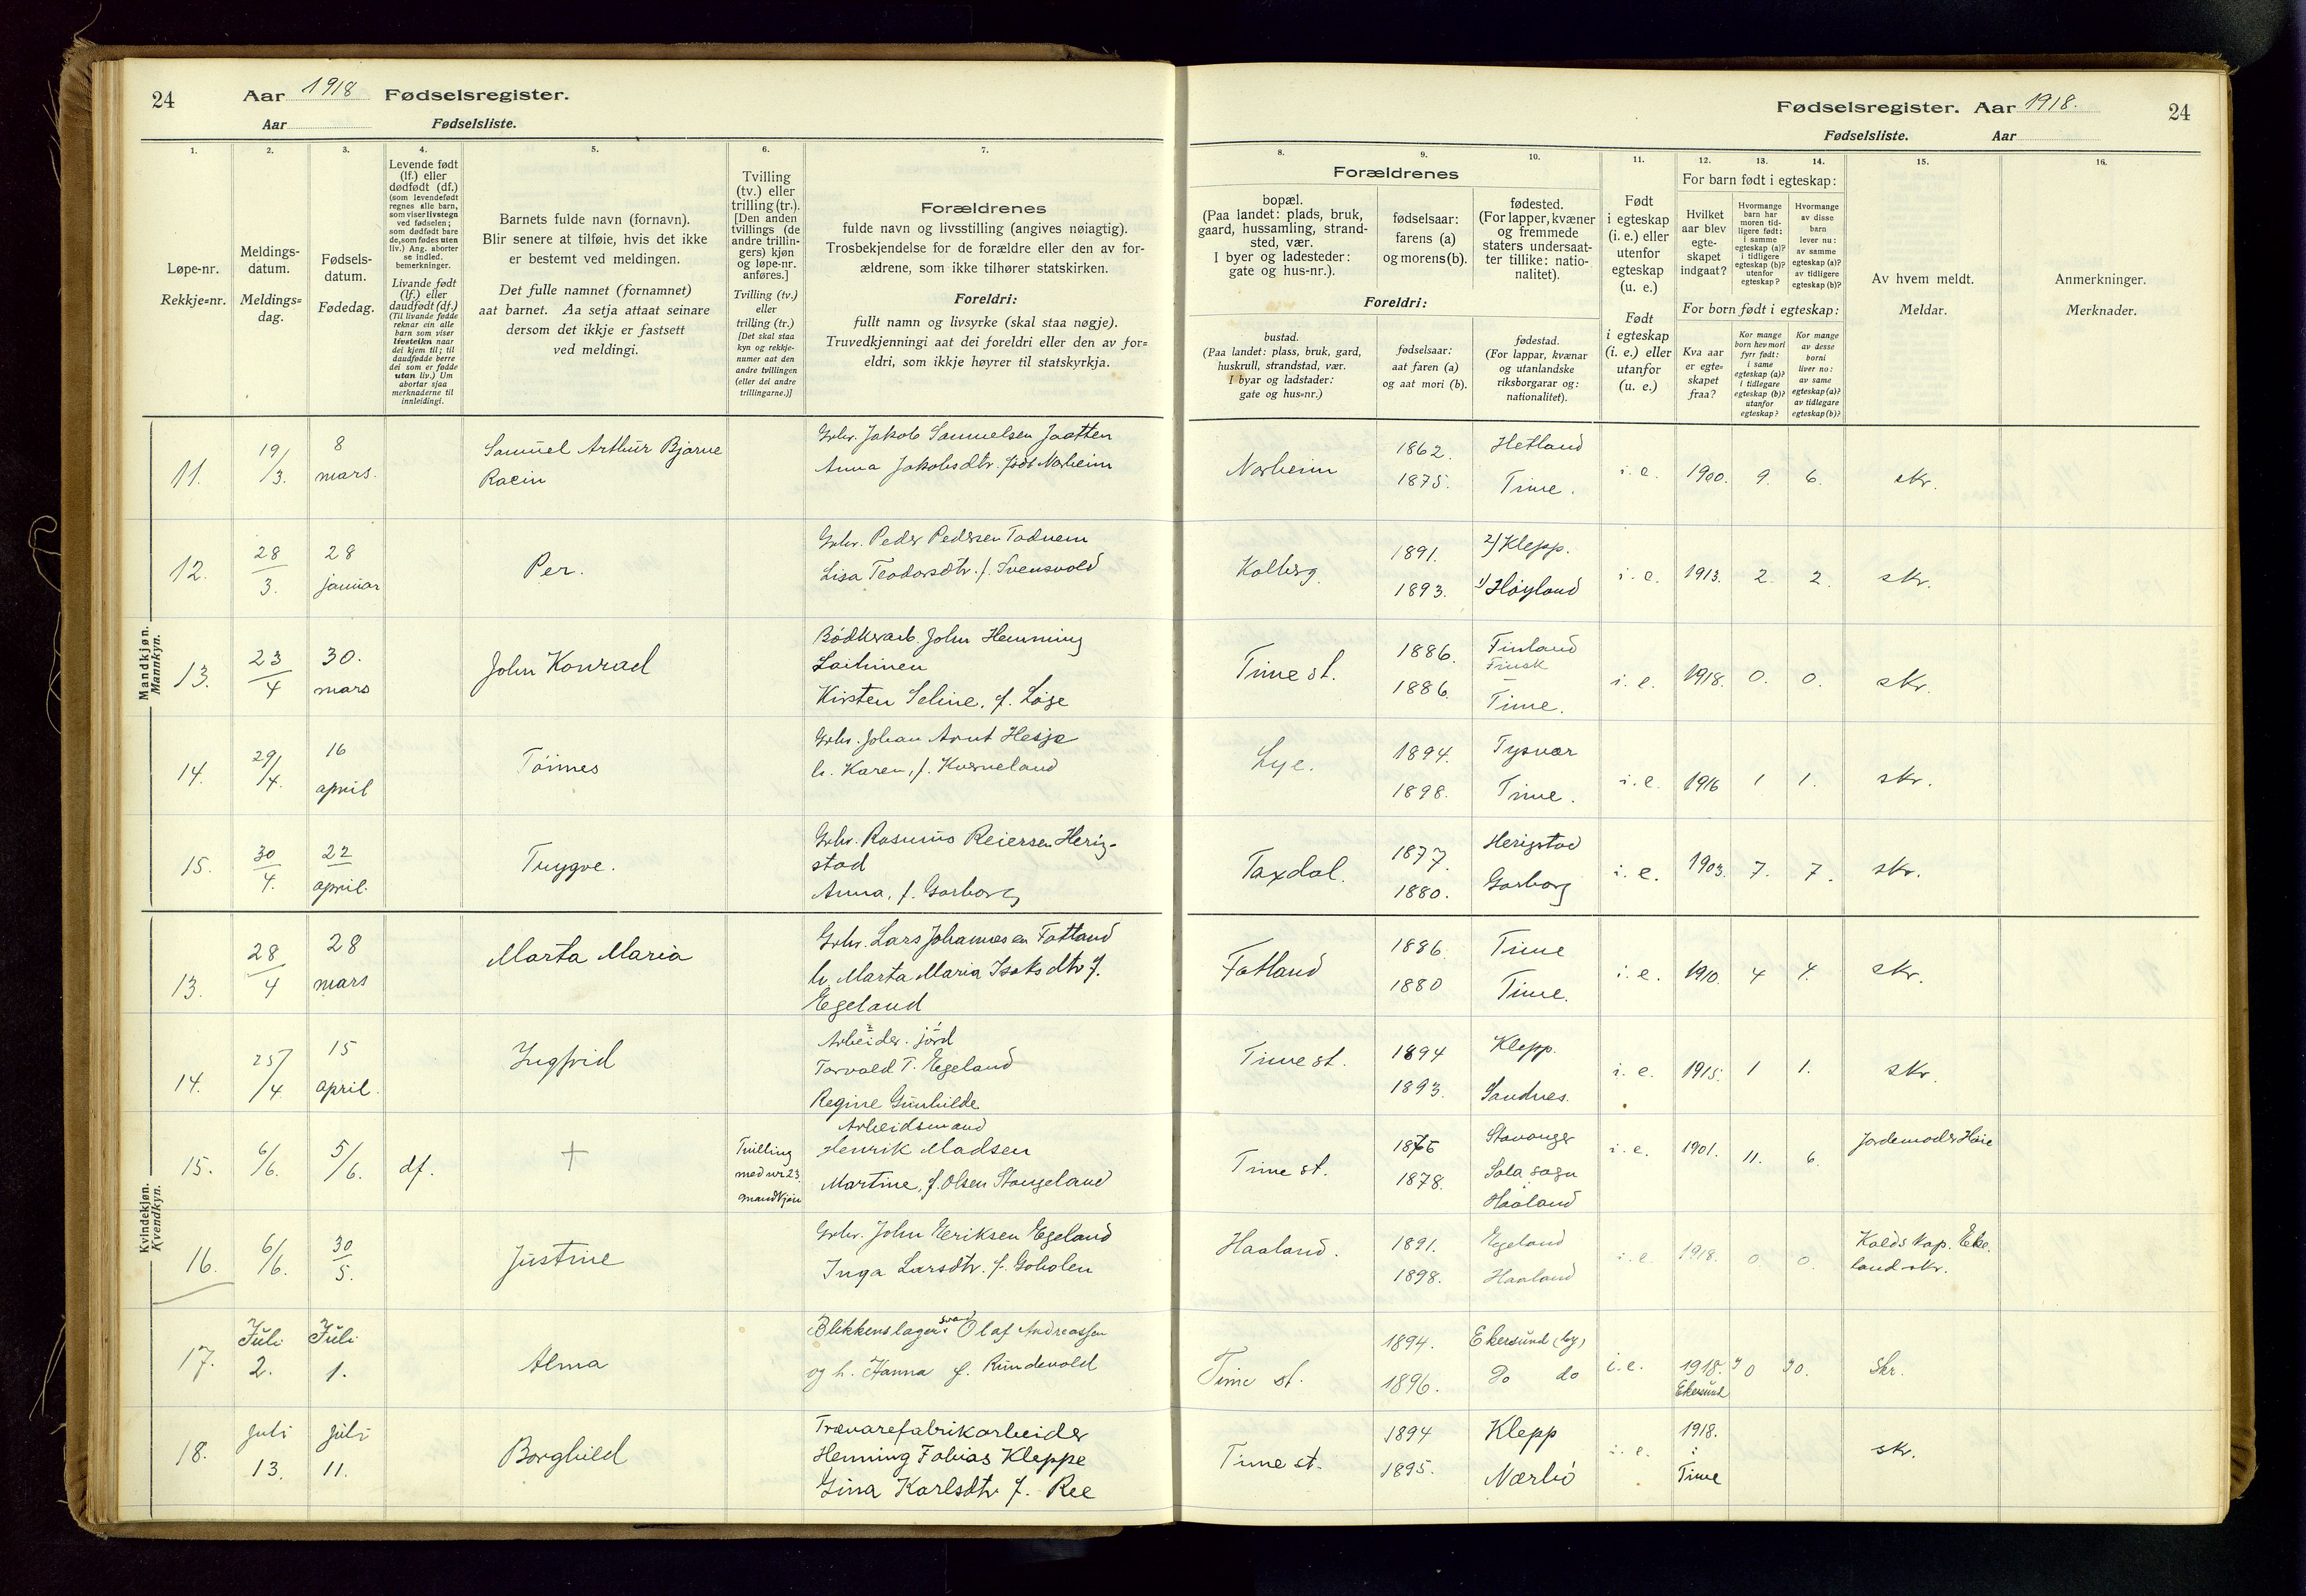 24
Aar 1918 Fødselsregister.
Aar Fødselsliste.
1.
2.
3.
4.
5.
6.
7.
Løpe-nr.
Rekkje=nr.
Meldings-
datum.
Meldings=
dag.
Fødsels-
datum.
Fødedag.
Levende født
(lf.) eller
dødfødt (df.)
(som levendefødt
regnes alle barn,
som viser livstegn
ved fødselen;
som dødfødt bare
de, som fødes uten
liv.) Ang. aborter
se indled.
bemerkninger.
Livande født
(lf.) eller
daudfødt (df.)
(Til livande fødde
reknar ein alle
barn som viser
livsteikn naar
dei kjem til; til
daudfødde berre
dei som er fødde
utan liv.) Um
abortar sjaa
merknaderne til
innleidingi.
Barnets fulde navn (fornavn).
Blir senere at tilføie, hvis det ikke
er bestemt ved meldingen.
Det fulle namnet (fornamnet)
aat barnet. Aa setja attaat seinare
dersom det ikkje er fastsett
ved meldingi.
Tvilling
(tv.) eller
trilling (tr.).
[Den anden
tvillings (de
andre trillin-
gers) kjøn
og løpe-nr.
anføres.]
Tvilling (tv.)
eller
trilling (tr.)
[Det skal staa
kyn og rekkje-
numer aat den
andre tvillingen
(eller dei andre
trillingarne.)]
Forældrenes
fulde navn og livsstilling (angives nøiagtig).
Trosbekjendelse for de forældre eller den av for-
ældrene, som ikke tilhører statskirken.
Foreldri:
fullt namn og livsyrke (skal staa nøgje).
Truvedkjenningi aat dei foreldri eller den av for=
eldri, som ikkje høyrer til statskyrkja.
Mandkjøn.
Mannkyn.
11.
19/3.
8
mars.
Samuel Arthur Bjarne
Raein
Grbr. Jakob Samuelsen Jaatten
Anna Jakobsdtr. født Norheim
12.
28
3.
28
januar
Per.
Grbr. Peder Pedersen Tadnem
Lisa Teodorsdtr. f. Svensvold
13.
23
4
30.
mars
John Konrad
Bødkerarb. John Hemming
Laitinen
Kirsten Seline, f. Løge
14.
29/4.
16
april
Tønnes
Grbr. Johan Arnt Hesje
h. Karen, f. Kverneland
15.
30
4.
22
april.
Trygve.
Grbr. Rasmus Reiersen Herig-
stad
Anna, f. Garborg
Kvindekjøn.
Kvendkyn.
13.
28
4
28
mars
Marta Maria
Grbr. Lars Johannesen Fatland
h. Marta Maria Isaksdtr f.
Egeland
14.
25/4.
15
april.
Ingfrid
Arbeider. jord
Torvald T. Egeland
Regine Gunhilde
15.
6/6.
5/6.
df.
+
Tvilling
med nr 23.
mandkjøn
Arbeidsmand
Henrik Madsen
Martine, f. Olsen Stangeland
16.
6/6.
30
5.
Justine
Grbr. John Eeriksen Egeland
Inga Larsdtr. f. Goholen
17.
Juli
2.
Juli
1.
Alma
Blikkenslagersvend Olaf Andreassen
og h. Hanna f. Rundevold
18.
juli
13.
juli
11.
Borghild
Trævarefabrikarbeider
Henning Tobias Kleppe
Gina Karlsdtr f. Ree
Fødselsregister. Aar 1918.
24
Fødselsliste. Aar
8.
9.
10.
11.
12.
13.
14.
15.
16.
Forældrenes
bopæl.
(Paa landet: plads, bruk,
gaard, hussamling, strand-
sted, vær.
I byer og ladesteder:
gate og hus-nr.).
fødselsaar:
farens (a)
og morens (b).
fødested.
(For lapper, kvæner
og fremmede
staters undersaat-
ter tillike: natio-
nalitet).
Foreldri:
bustad.
(Paa landet: plass, bruk, gard,
huskrull, strandstad, vær.
I byar og ladstader:
gate og hus=nr.)
fødselsaar:
aat faren (a)
og aat mori (b).
fødestad.
(For lappar, kvænar
og utanlandske
riksborgarar og:
nationalitet).
Født
i egteskap
(i. e.) eller
utenfor
egteskap
(u. e.)
Født
i egteskap
(i. e.) eller
utanfor
(u. e.)
For barn født i egteskap:
Hvilket
aar blev
egte-
skapet
indgaat?
Hvormange
barn har
moren tid-
ligere født:
i samme
egteskap (a)?
i tidligere
egteskap (b)?
utenfor
egteskap?
Hvormange
av disse
barn
lever nu:
av samme
egteskap (a)?
av tidligere
egteskap (b)?
For born født i egteskap:
Kva aar
er egte=
skapet
fraa?
Kor mange
born hev mori
fyrr født:
i same
egteskap (a)?
i tidlegare
egteskap (b)?
utanfor
egteskap?
Kor mange
av desse
borni
liver no:
av same
egteskap (a)?
av tidlegare
egteskap (b)?
Av hvem meldt.
Meldar.
Anmerkninger.
Merknader.
Norheim
1862.
1875.
Hetland
Time.
i. e.
1900.
9.
6.
skr.
Kolberg.
1891.
1893.
2) Klepp.
1) Høyland
i. e.
1913.
2.
2.
skr.
Time st.
1886.
1886.
Finland
Finsk
Time.
i. e.
1918.
0.
0.
skr.
Lye.
1894.
1898.
Tysvær
Time.
i. e.
1916
1
1.
skr.
Taxdal.
1877.
1880.
Herigstad
Garborg
i. e.
1903.
7.
7.
skr.
Fatland
1886.
1880
Time
Time.
i. e.
1910.
4
4.
skr.
Time st.
1894
1893.
Klepp.
Sandnes.
i. e.
1915.
1
1.
skr.
Time st.
1875
1878.
Stavanger
Sola sogn
Haaland
i. e.
1901.
11.
6.
Jordemoder Høie
Haaland.
1891.
1898.
Egeland
Haaland
i. e.
1918.
0
0.
Kalds kap. Eke.
land skr.
Time st.
1894.
1896.
Ekersund (by)
Do do
i. e.
1918.
Ekersund
0
0.
Skr.
Time st.
1894
1895.
Klepp
Nærbø
i. e.
1918.
Time
skr.